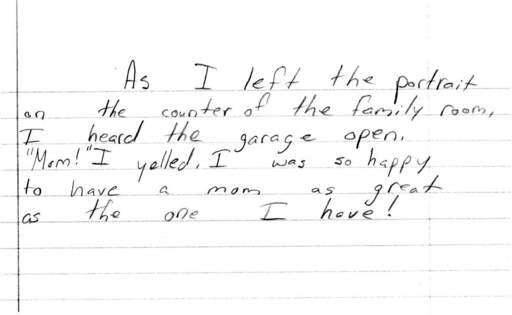 As I left the portrait
on the counter of the family room,
I heard the garage open.
"Mom!" I yelled. I was so happy
to have a mom as great
as the one I have!